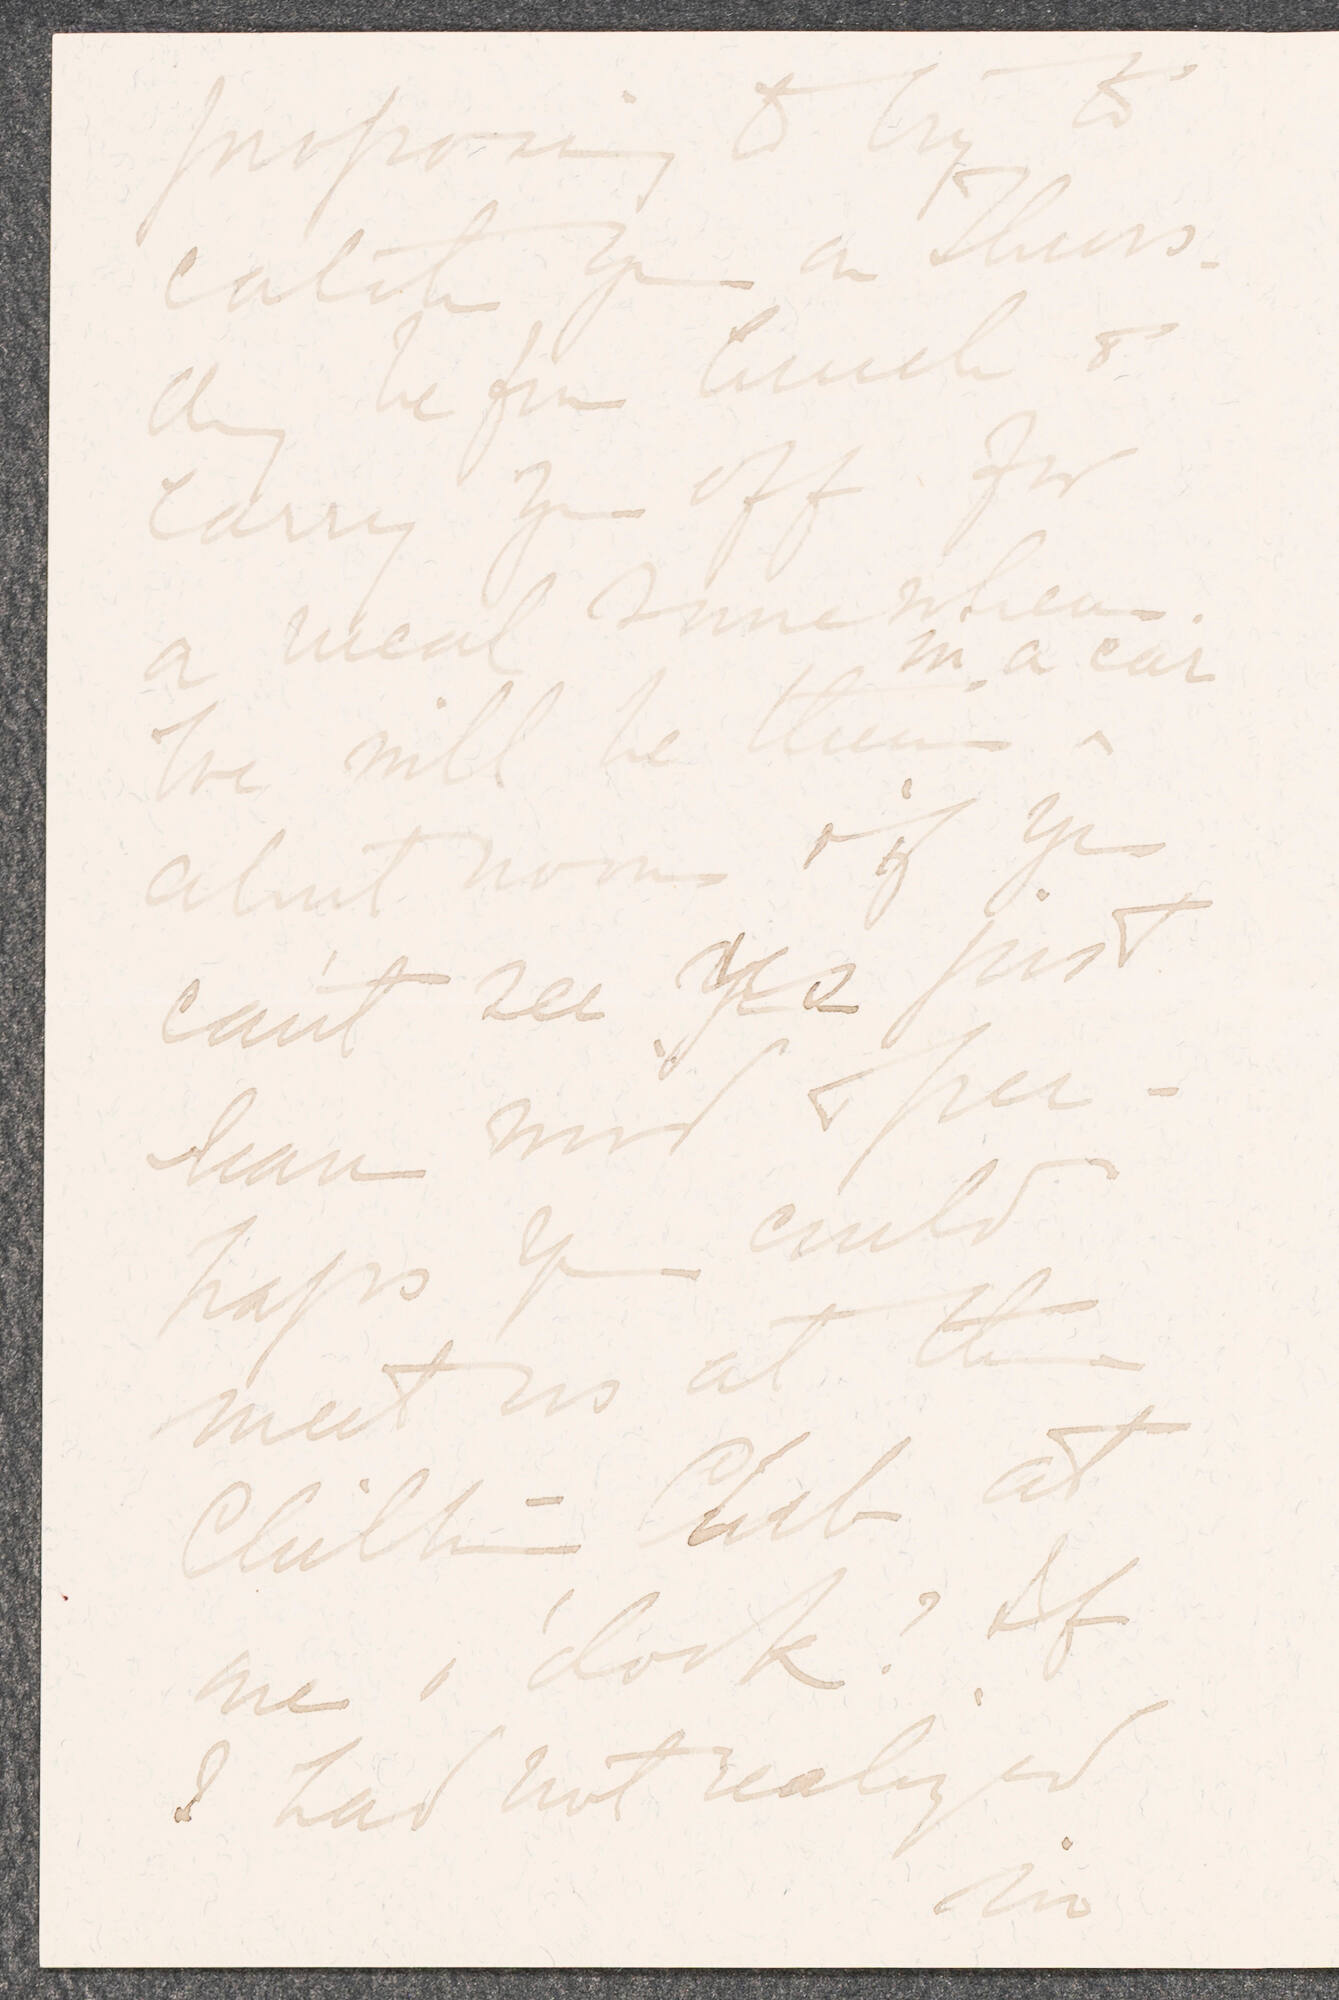 proposing to try to
catch you on Thurs-
day before lunch &
carry you off for
a meal somewhere.
in a car
We will be there ^
about noon & if you
can't see yes just
leave word & per-
haps you could
meet us at the
Chilton Club at
one o'clock? If
I had not realized